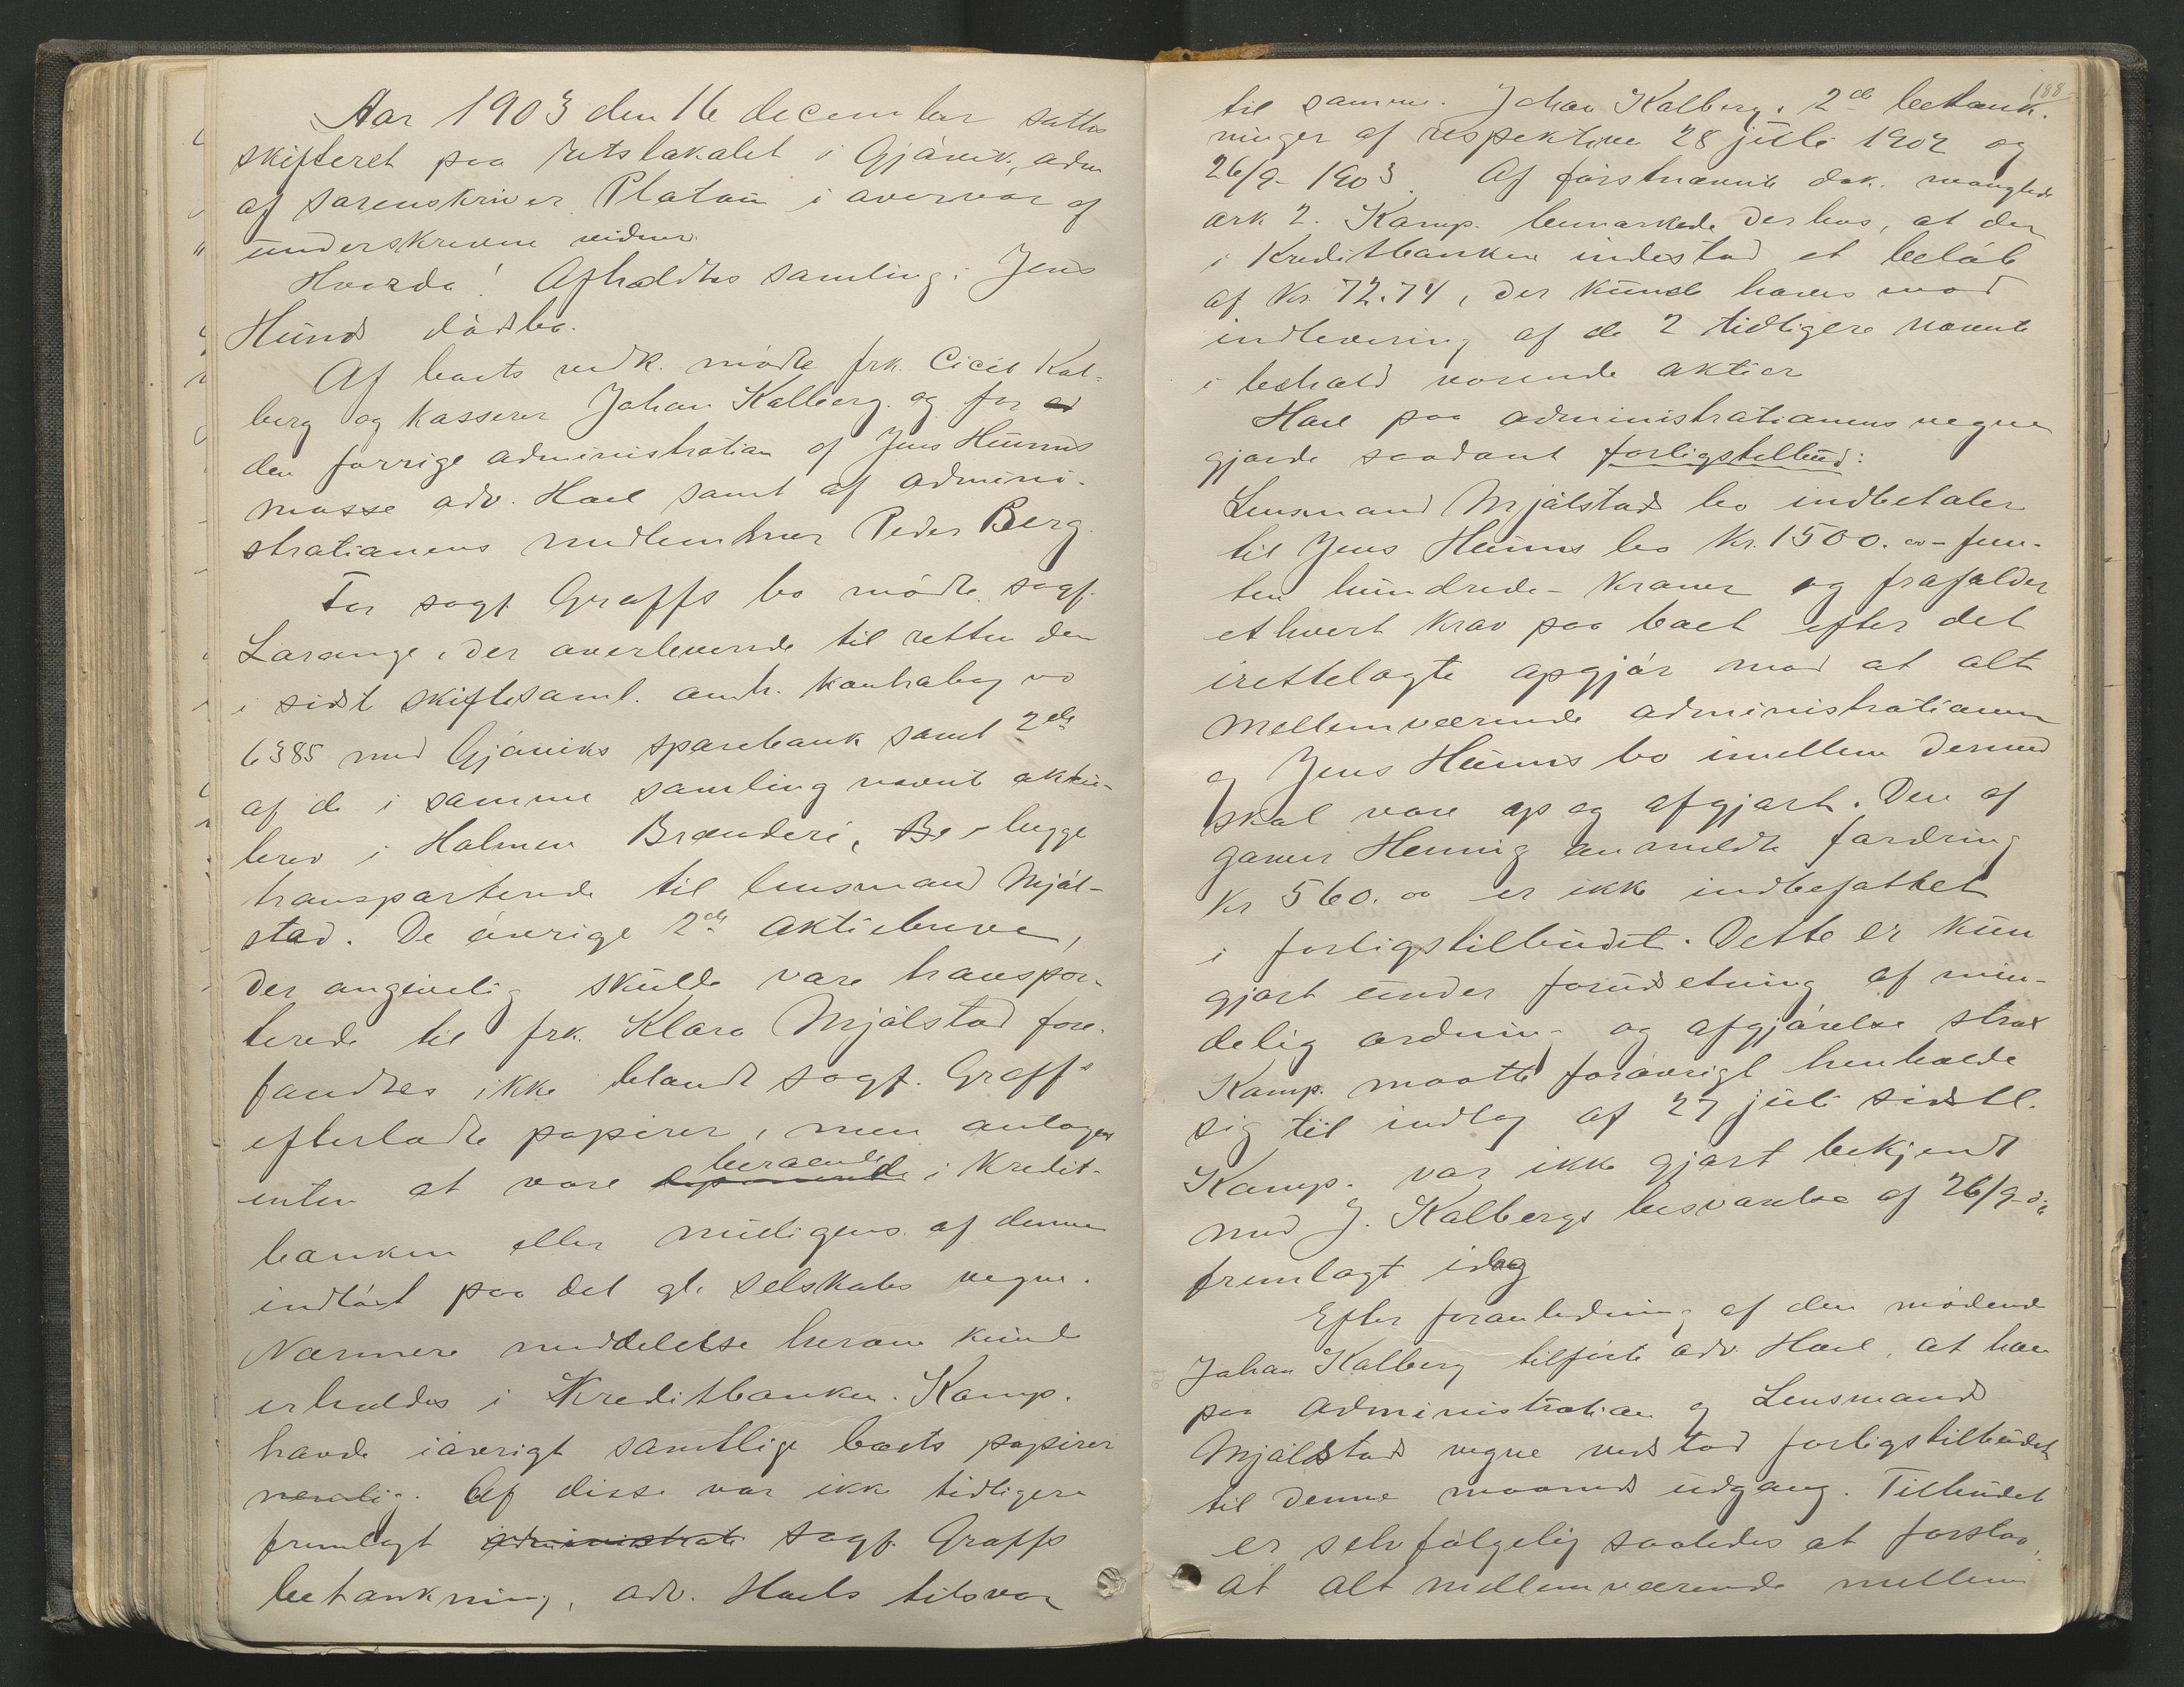 Aar 1903 den 16 december sattes
skifteret paa retslokalet i Gjøvik, adm
af sorenskriver Platou i overvær af
underskrevne vidner.
Hvorda! Afholdtes samling i Jens
Hunds dødsbo.
Af boets vedk. mødte frk. Cicil Kal-
berg og kasserer Johan Kalberg og for
den forrige administration af Jens Hunns
masse adv. Hoel samt af admini-
strationens medlemmer Peder Berg.
For sagf. Graffs bo mødte sagf.
Lorange, der overleverede til retten den
i sidst skiftesaml. omh. kontrabog no
6385 med Gjøviks sparebank samt 2de
af de i samme samling nævnte aktie-
brev i Holmen Brænderi, begge
transporterede til lensmand Mjøl-
stad. De øvrige 2de aktiebreve,
der angivelig skulde være transpor-
terede til frk. Klara Mjølstad fore-
fandtes ikke blandt sagf. Graffs
efterladte papirer, men antages
enten at være beroende i Kredit-
banken eller muligens af denne
indløst paa det gl. selskabs vegne.
Nærmere meddelelse herom kunde
erholdes i Kreditbanken. Komp.
havde iøvrigt samtlige boets papirer
nemlig. Af disse var ikke tidligere
fremlagt administrati sagf. Graffs
betænkning, adv. Hoels tilsvar
188
til samme. Johan Kalberg, 2de betænk-
ninger af respektive 28 juli 1902 og
26/9- 1903. Af førstnævnte dok. manglede
ark 2. Komp. bemærkede derhos, at der
i Kreditbanken indestod et beløb
af Kr. 72.74, der kunde hæves mod
indlevering af de 2 tidligere nævnte
i behold værende aktier
Hoel paa administrationens vegne
gjorde saadant forligstilbud:
Lensmand Mjølstads bo indbetaler
til Jens Hunns bo Kr. 1500.00 - fem-
ten hundrede - kroner og frafalder
ethvert krav paa boet efter det
irettelagte opgjør mod at alt
mellemværende administrationen
og Jens Hunns bo imellem dermed
skal være op og afgjort. Den af
Henning anmeldte fordring
Kr 560.00 er ikke indbefattet
i forligstilbudet. Dette er kun
gjort under forudsetning af min-
delig ordning og afgjørelse strax
Komp. maatte forøvrigt henholde
sig til indlæg af 27 juli sidstl.
Komp. var ikke gjort bekjendt
med J. Kalbergs besvarelse af 26/9 d.a.
fremlagt idag
Efter foranledning af den mødende
Johan Kalberg tilførte adv. Hoel, at han
paa administration og Lensmand
Mjølstads vegne vedstod forligstilbudet
til denne maaneds udgang. Tilbudet
er selvfølgelig saaledes at forstaa,
at alt mellemværende mellem